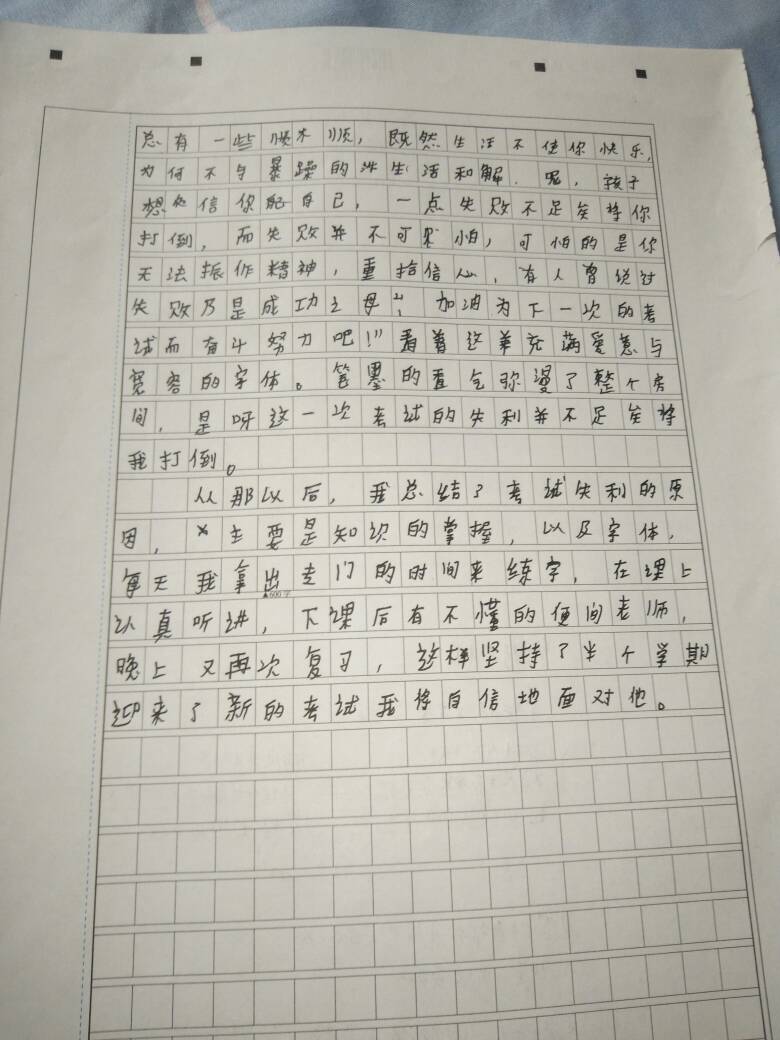 总有一些顺不顺，既然生活不使你快乐，
为何不与暴躁的生活和解。呢，孩子
想信你的自己，一点失败不足矣将你
打倒，而失败并不可怕，可怕的是你
无法振作精神，重拾信心，有人曾说过
失败乃是成功之母，加油为下一次的考
试而奋斗努力吧!"看着这第充满爱意与
宽容的字体。笔墨的香气弥漫了整个房
间，是呀这一次考试的失利并不足矣将
我打倒。
从那以后，我总结了考试失利的原
因，主要是知识的掌握，以及字体，
每天我拿出专门的时间来练字，在课上
▲600字
认真听讲，下课后有不懂的便问老师，
晚上又再次复习，这样坚持了半个学期
迎来了新的考试我将自信地面对他。